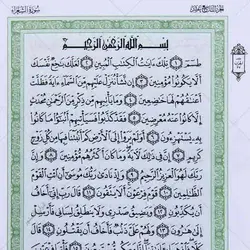 الجزء التاسع عشر
سورة الشعراء
بِسْمِ اللَّهِ الرَّحْمَٰنِ الرَّحِيمِ
طسٓمٓ ١ تِلْكَ ءَايَٰتُ ٱلْكِتَٰبِ ٱلْمُبِينِ ٢ لَعَلَّكَ بَٰخِعٌ نَّفْسَكَ
أَلَّا يَكُونُوا۟ مُؤْمِنِينَ ٣ إِن نَّشَأْ نُنَزِّلْ عَلَيْهِم مِّنَ ٱلسَّمَآءِ ءَايَةً فَظَلَّتْ
أَعْنَٰقُهُمْ لَهَا خَٰضِعِينَ ٤ وَمَا يَأْتِيهِم مِّن ذِكْرٍ مِّنَ ٱلرَّحْمَٰنِ مُحْدَثٍ
إِلَّا كَانُوا۟ عَنْهُ مُعْرِضِينَ ٥ فَقَدْ كَذَّبُوا۟ فَسَيَأْتِيهِمْ أَنۢبَٰٓؤُا۟ مَا كَانُوا۟
بِهِۦ يَسْتَهْزِءُونَ ٦ أَوَلَمْ يَرَوْا۟ إِلَى ٱلْأَرْضِ كَمْ أَنۢبَتْنَا فِيهَا مِن كُلِّ زَوْجٍ
كَرِيمٍ ٧ إِنَّ فِى ذَٰلِكَ لَءَايَةً وَمَا كَانَ أَكْثَرُهُم مُّؤْمِنِينَ ٨ وَإِنَّ رَبَّكَ
لَهُوَ ٱلْعَزِيزُ ٱلرَّحِيمُ ٩ وَإِذْ نَادَىٰ رَبُّكَ مُوسَىٰٓ أَنِ ٱئْتِ ٱلْقَوْمَ
ٱلظَّٰلِمِينَ ١٠ قَوْمَ فِرْعَوْنَ أَلَا يَتَّقُونَ ١١ قَالَ رَبِّ إِنِّىٓ أَخَافُ
أَن يُكَذِّبُونِ ١٢ وَيَضِيقُ صَدْرِى وَلَا يَنطَلِقُ لِسَانِى فَأَرْسِلْ
إِلَىٰ هَٰرُونَ ١٣ وَلَهُمْ عَلَىَّ ذَنۢبٌ فَأَخَافُ أَن يَقْتُلُونِ ١٤ قَالَ